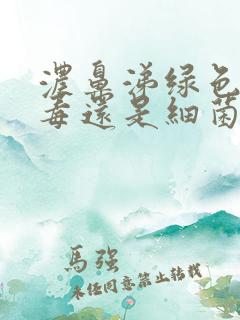 濃鼻涕绿色
毒還是細菌
馬强
未经同意禁止转载